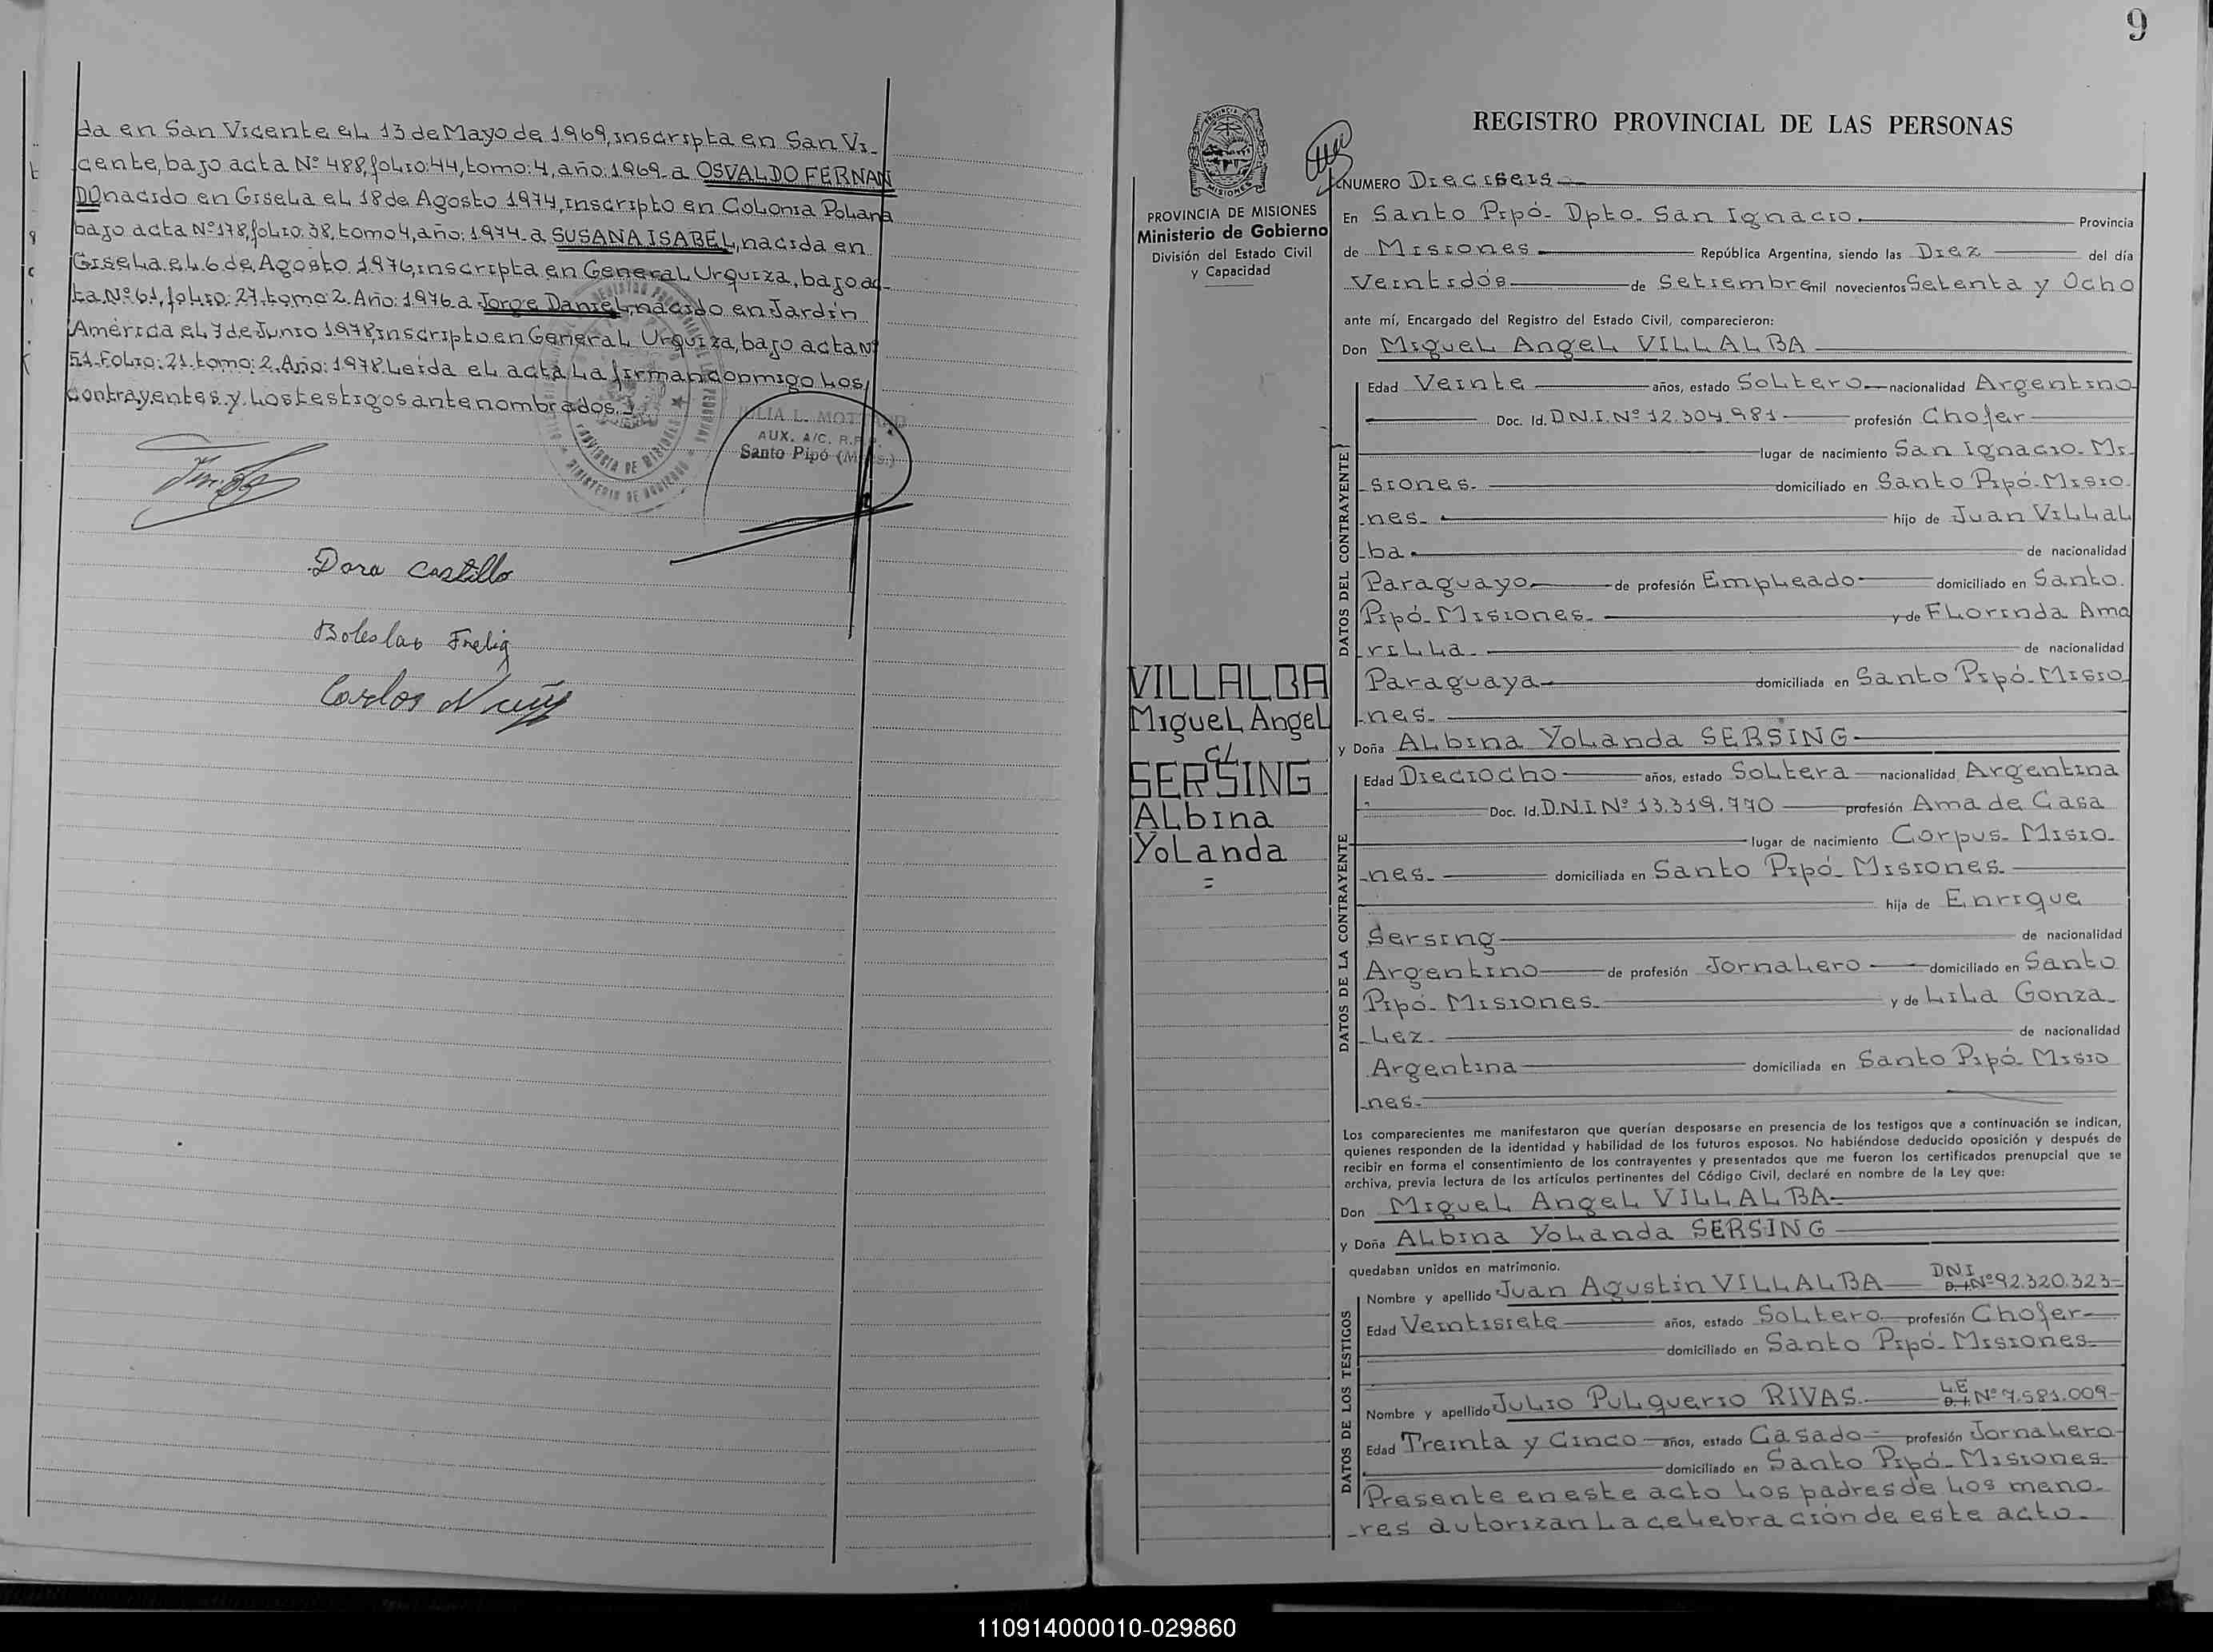 da en San Vicente el 13 de Mayo de 1969, inscripta en San Vi-
cente, bajo acta Nº 488, folio: 44, tomo: 4, año: 1969- a OSVALDO FERNAN
DO nacido en Gisela el 18 de Agosto 1974, inscripto en Colonia Polana
bajo acta Nº 178, folio: 38, tomo 4, año: 1974- a SUSANA ISABEL, nacida en
Gisela el 6 de Agosto 1976, inscripta en General Urquiza, bajo ac-
ta Nº 61, folio: 27, tomo 2. Año: 1976 a Jorge Daniel, nacido en Jardín
América el 7 de Junio 1978, inscripto en General Urquiza, bajo acta Nº
51- Folio: 21- tomo: 2. Año: 1978. Leída el acta la firman conmigo los
contrayentes y los testigos antenombrados.-
AUX. A/C. R.P.P.
Santo Pipó (Mnes.)
Dora Castillo
Boleslao Frelig
Carlos
9
REGISTRO PROVINCIAL DE LAS PERSONAS
PROVINCIA DE MISIONES
Ministerio de Gobierno
División del Estado Civil
y Capacidad
VILLALBA
Miguel Angel
c/
SERSING
Albina
Yolanda
=
NUMERO Dieciseis
En Santo Pipó- Dpto. San Ignacio. Provincia
de Misiones República Argentina, siendo las Diez del día
Veintidós de Setiembre mil novecientos Setenta y Ocho
ante mí, Encargado del Registro del Estado Civil, comparecieron:
Don Miguel Angel VILLALBA
DATOS DEL CONTRAYENTE
Edad Veinte años, estado Soltero nacionalidad Argentino
Doc. Id. D.N.I. Nº 12.304.981 profesión Chofer
lugar de nacimiento San Ignacio- Mi-
siones. domiciliado en Santo Pipó- Misio-
nes. hijo de Juan Villal
ba. de nacionalidad
Paraguayo de profesión Empleado domiciliado en Santo
Pipó- Misiones. y de Florinda Ama
rilla. de nacionalidad
Paraguaya domiciliada en Santo Pipó- Misio
nes.
y Doña Albina Yolanda SERSING
DATOS DE LA CONTRAYENTE
Edad Dieciocho años, estado Soltera nacionalidad Argentina
Doc. Id. D.N.I Nº 13.319.770 profesión Ama de Casa
lugar de nacimiento Corpus- Misio-
nes. domiciliada en Santo Pipó- Misiones.
hija de Enrique
Sersing de nacionalidad
Argentino de profesión Jornalero domiciliado en Santo
Pipó- Misiones. y de Lila Gonza-
lez. de nacionalidad
Argentina domiciliada en Santo Pipó- Misio
nes.
Los comparecientes me manifestaron que querían desposarse en presencia de los testigos que a continuación se indican,
quienes responden de la identidad y habilidad de los futuros esposos. No habiéndose deducido oposición y después de
recibir en forma el consentimiento de los contrayentes y presentados que me fueron los certificados prenupcial que se
archiva, previa lectura de los artículos pertinentes del Código Civil, declaré en nombre de la Ley que:
Don Miguel Angel VILLALBA
y Doña Albina Yolanda SERSING
quedaban unidos en matrimonio.
DATOS DE LOS TESTIGOS
Nombre y apellido Juan Agustín VILLALBA DNI Nº 92.320.323
Edad Veintisiete años, estado Soltero profesión Chofer
domiciliado en Santo Pipó- Misiones.
Nombre y apellido Julio Pulquerio RIVAS L.E Nº 7.581.009
Edad Treinta y Cinco años, estado Casado profesión Jornalero
domiciliado en Santo Pipó- Misiones.
Presente en este acto los padres de los meno-
res autorizan la celebración de este acto.
110914000010-029860